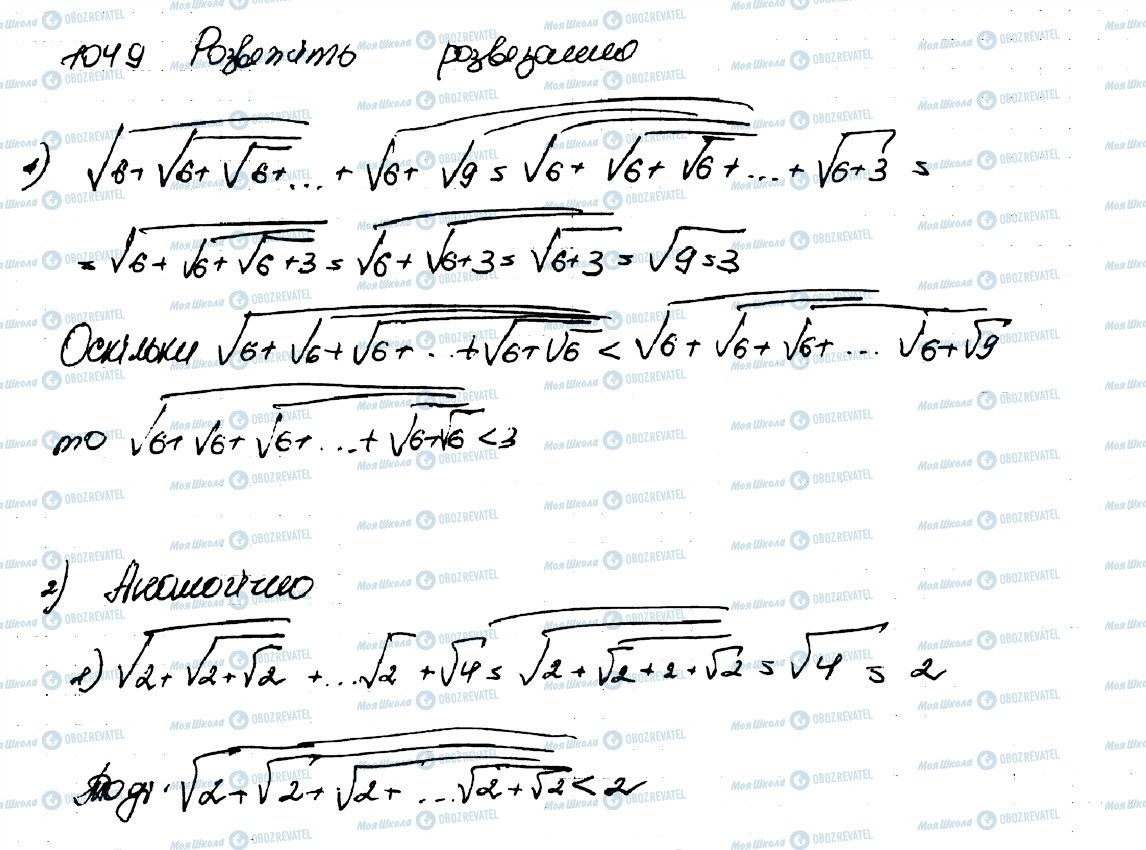 1049 Розв'яжіть розв'язання
1) √6+√6+√6+... + √6+√9 = √6+√6+√6+...+√6+3 =
= √6+√6+√6+3 = √6+√6+3 = √6+3 = √9=3
Оскільки √6+√6+√6+...+√6+√6 < √6+√6+√6+... √6+√9
то √6+√6+√6+...+√6+√6 <3
2) Аналогічно
1) √2+√2+√2 +...√2+√4 = √2+√2+2+√2 = √4 = 2
Тоді √2+√2+√2+...√2+√2<2